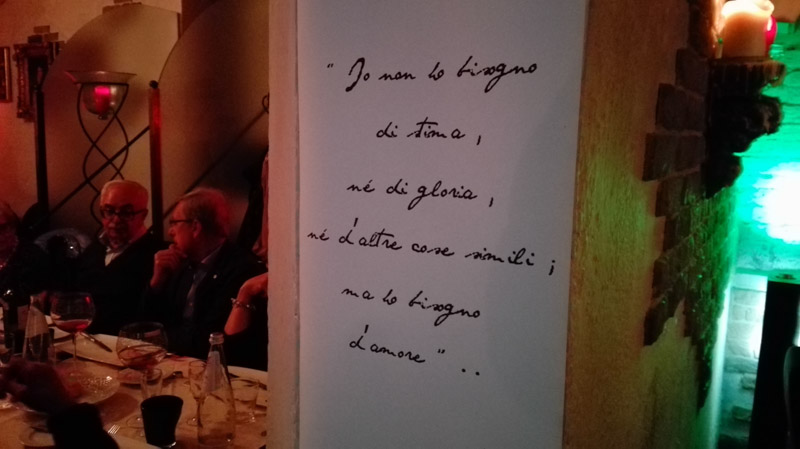 " Io non ho bisogno
di stima,
né di gloria,
né d'altre cose simili;
ma ho bisogno
d'amore " ..